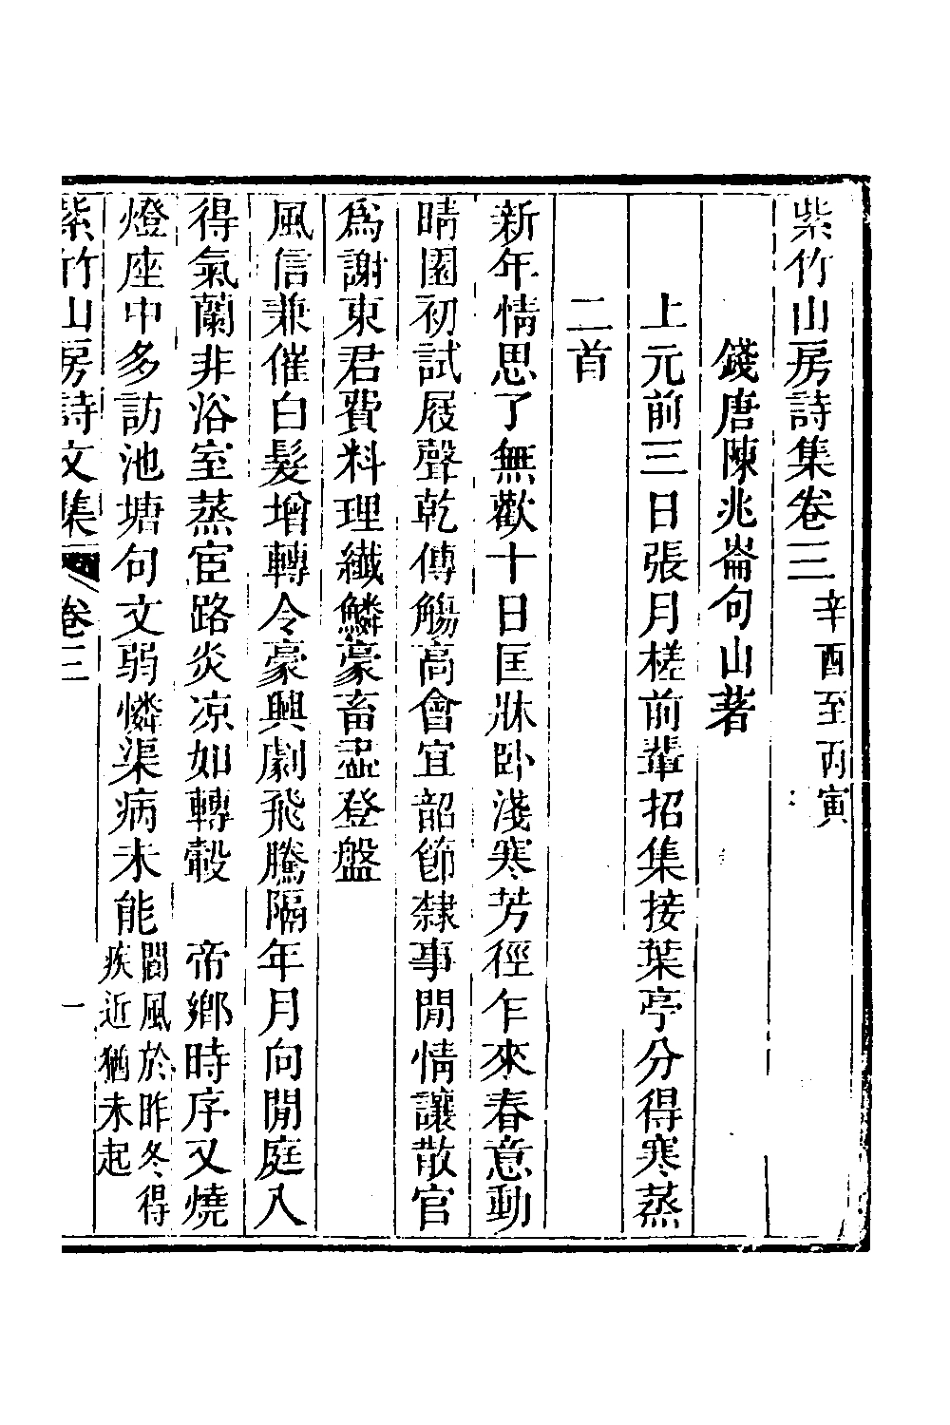 紫竹山房詩集卷三辛酉至丙寅
錢唐陳兆崙句山著
上元前三日張月槎前輩招集接葉亭分得寒蒸
二首
新年情思了無歡十日匡牀卧淺寒芳徑乍來春意動
晴園初試屐聲乾傳觴高會宜韶節隸事閒情讓散官
爲謝東君費料理纖鱗豪畜盡登盤
風信兼催白髮增轉令豪興劇飛騰隔年月向閒庭入
得氣蘭非浴室蒸宦路炎凉如轉轂 帝鄉時序又燒
燈座中多訪池塘句文弱憐渠病未能閻風於昨冬得疾近猶未起
紫竹山房詩文集 卷三 一